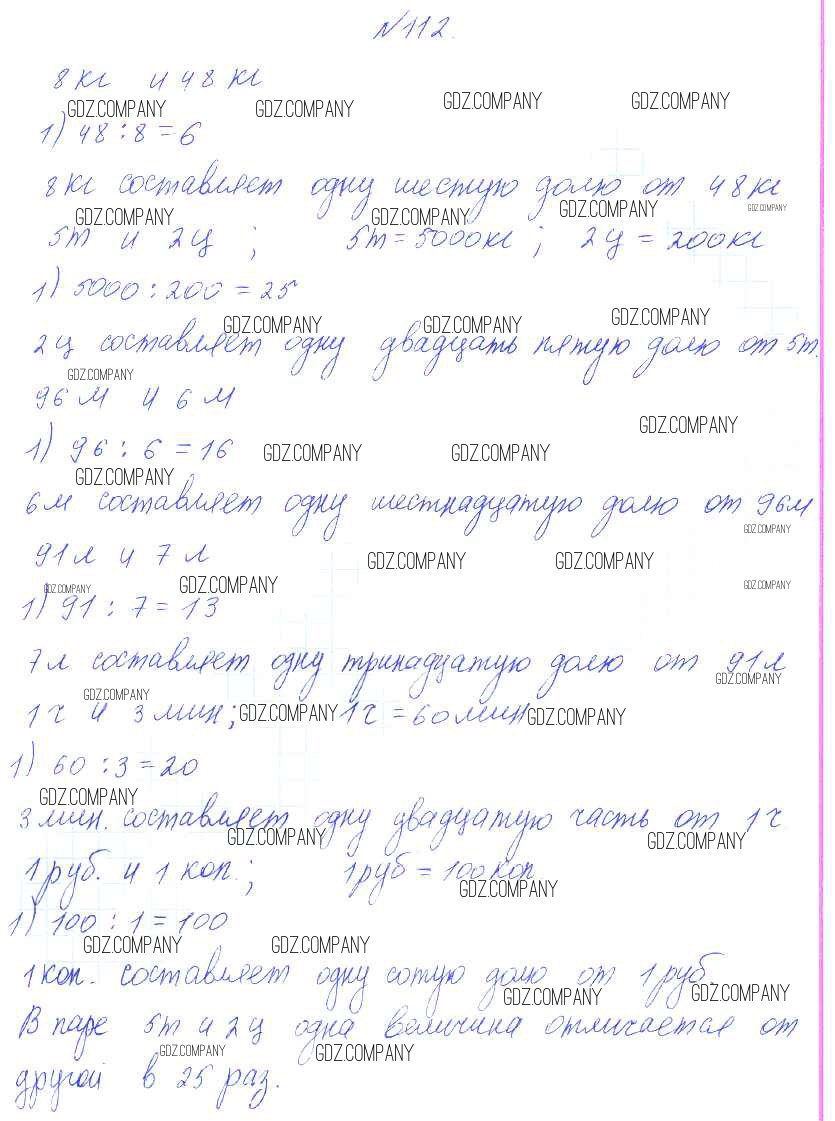 №112.
8 кг и 48 кг
GDZ.COMPANY GDZ.COMPANY GDZ.COMPANY GDZ.COMPANY
1) 48 : 8 = 6
8 кг составляет одну шестую долю от 48 кг
GDZ.COMPANY GDZ.COMPANY GDZ.COMPANY GDZ.COMPANY
5т и 2 ц ; 5т = 5000кг ; 2 ц = 200кг
1) 5000 : 200 = 25
GDZ.COMPANY GDZ.COMPANY GDZ.COMPANY
2 ц составляет одну двадцать пятую долю от 5т.
GDZ.COMPANY
96 м и 6 м
GDZ.COMPANY
1) 96 : 6 = 16 GDZ.COMPANY GDZ.COMPANY
GDZ.COMPANY
6м составляет одну шестнадцатую долю от 96м
GDZ.COMPANY
91 л и 7 л GDZ.COMPANY GDZ.COMPANY
GDZ.COMPANY GDZ.COMPANY GDZ.COMPANY
1) 91 : 7 = 13
7л составляет одну тринадцатую долю от 91 л
GDZ.COMPANY GDZ.COMPANY
1 ч и 3 мин; GDZ.COMPANY 1 ч = 60 мин GDZ.COMPANY
1) 60 : 3 = 20
GDZ.COMPANY
3 мин. составляет одну двадцатую часть от 1 ч.
GDZ.COMPANY GDZ.COMPANY
1 руб. и 1 коп.; 1 руб = 100 коп
GDZ.COMPANY
1) 100 : 1 = 100
GDZ.COMPANY GDZ.COMPANY
1 коп. составляет одну сотую долю от 1 руб.
GDZ.COMPANY GDZ.COMPANY
В паре 5т и 2 ц одна величина отличается от
GDZ.COMPANY GDZ.COMPANY
другой в 25 раз.